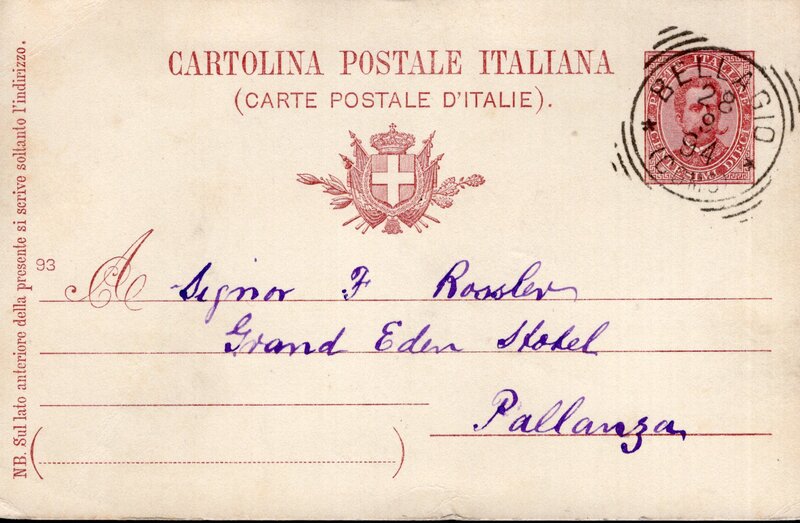 CARTOLINA POSTALE ITALIANA
(CARTE POSTALE D'ITALIE).
POSTE ITALIANE
CENTESIMI DIECI
BELLAGIO
28
94
(COMO)
NB. Sul lato anteriore della presente si scrive soltanto l'indirizzo.
93
A Signor F Rossler
Grand Eden Hotel
Pallanza